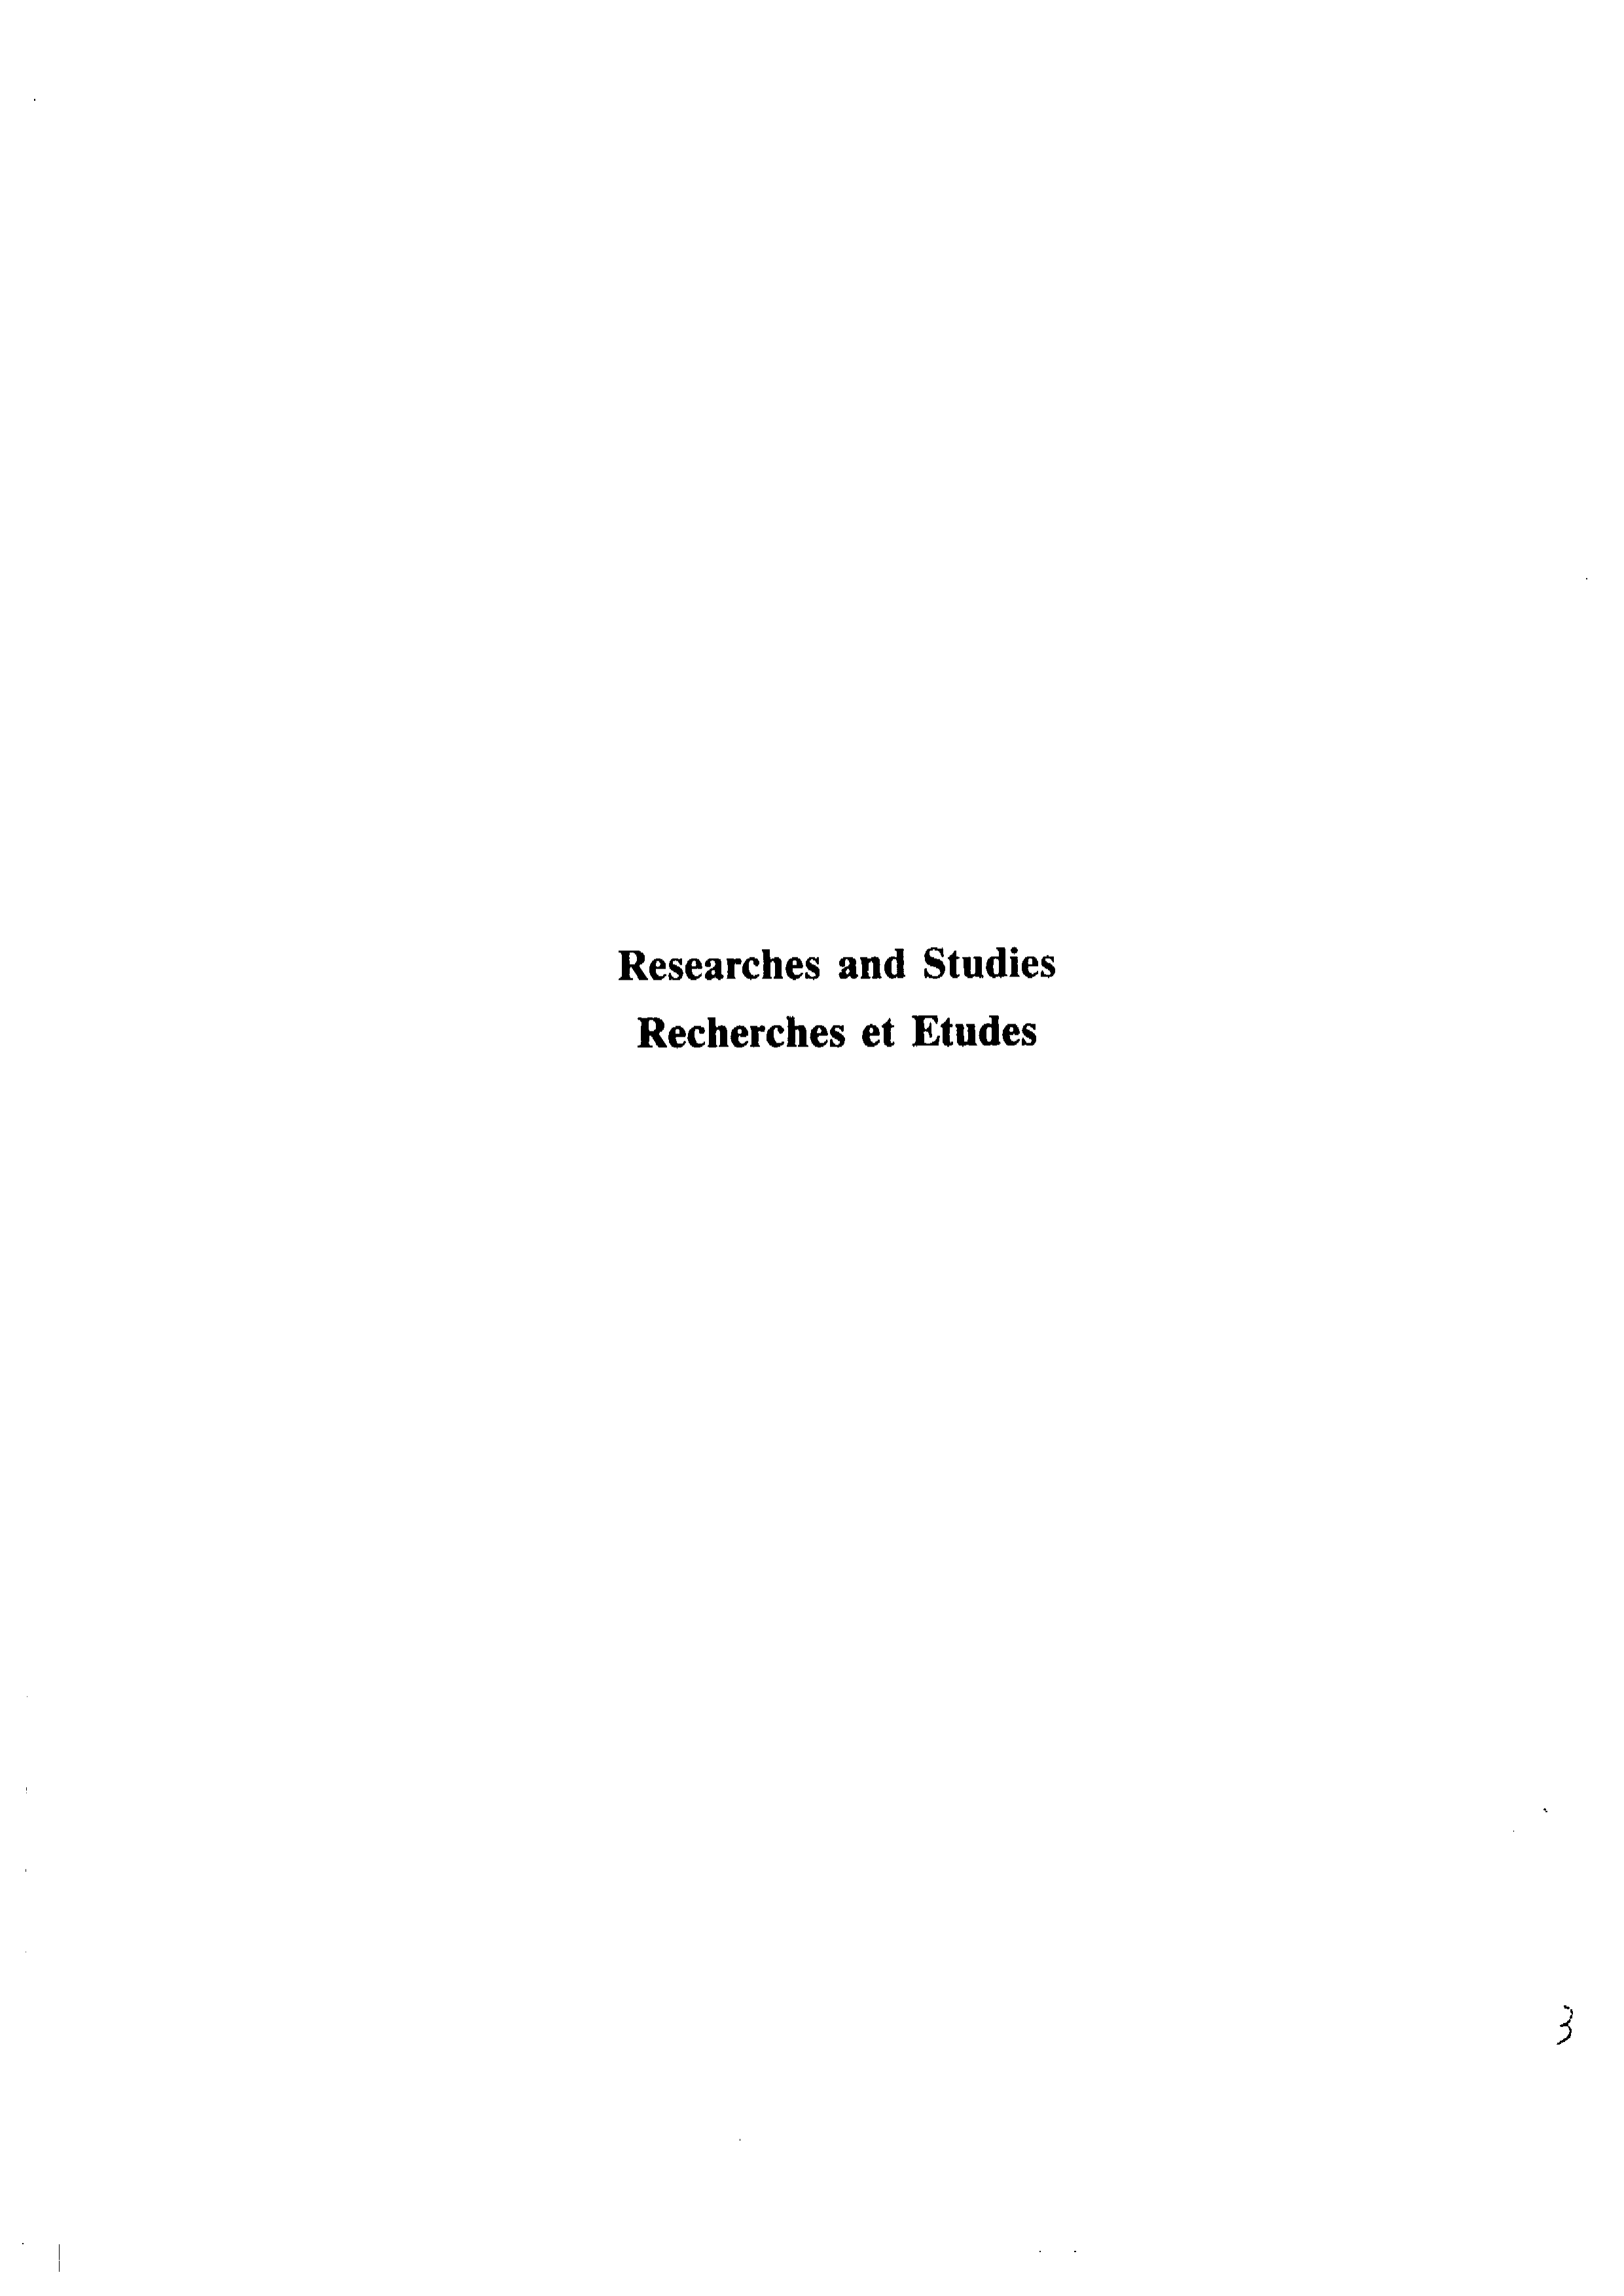 Researches and Studies
Recherches et Etudes
3